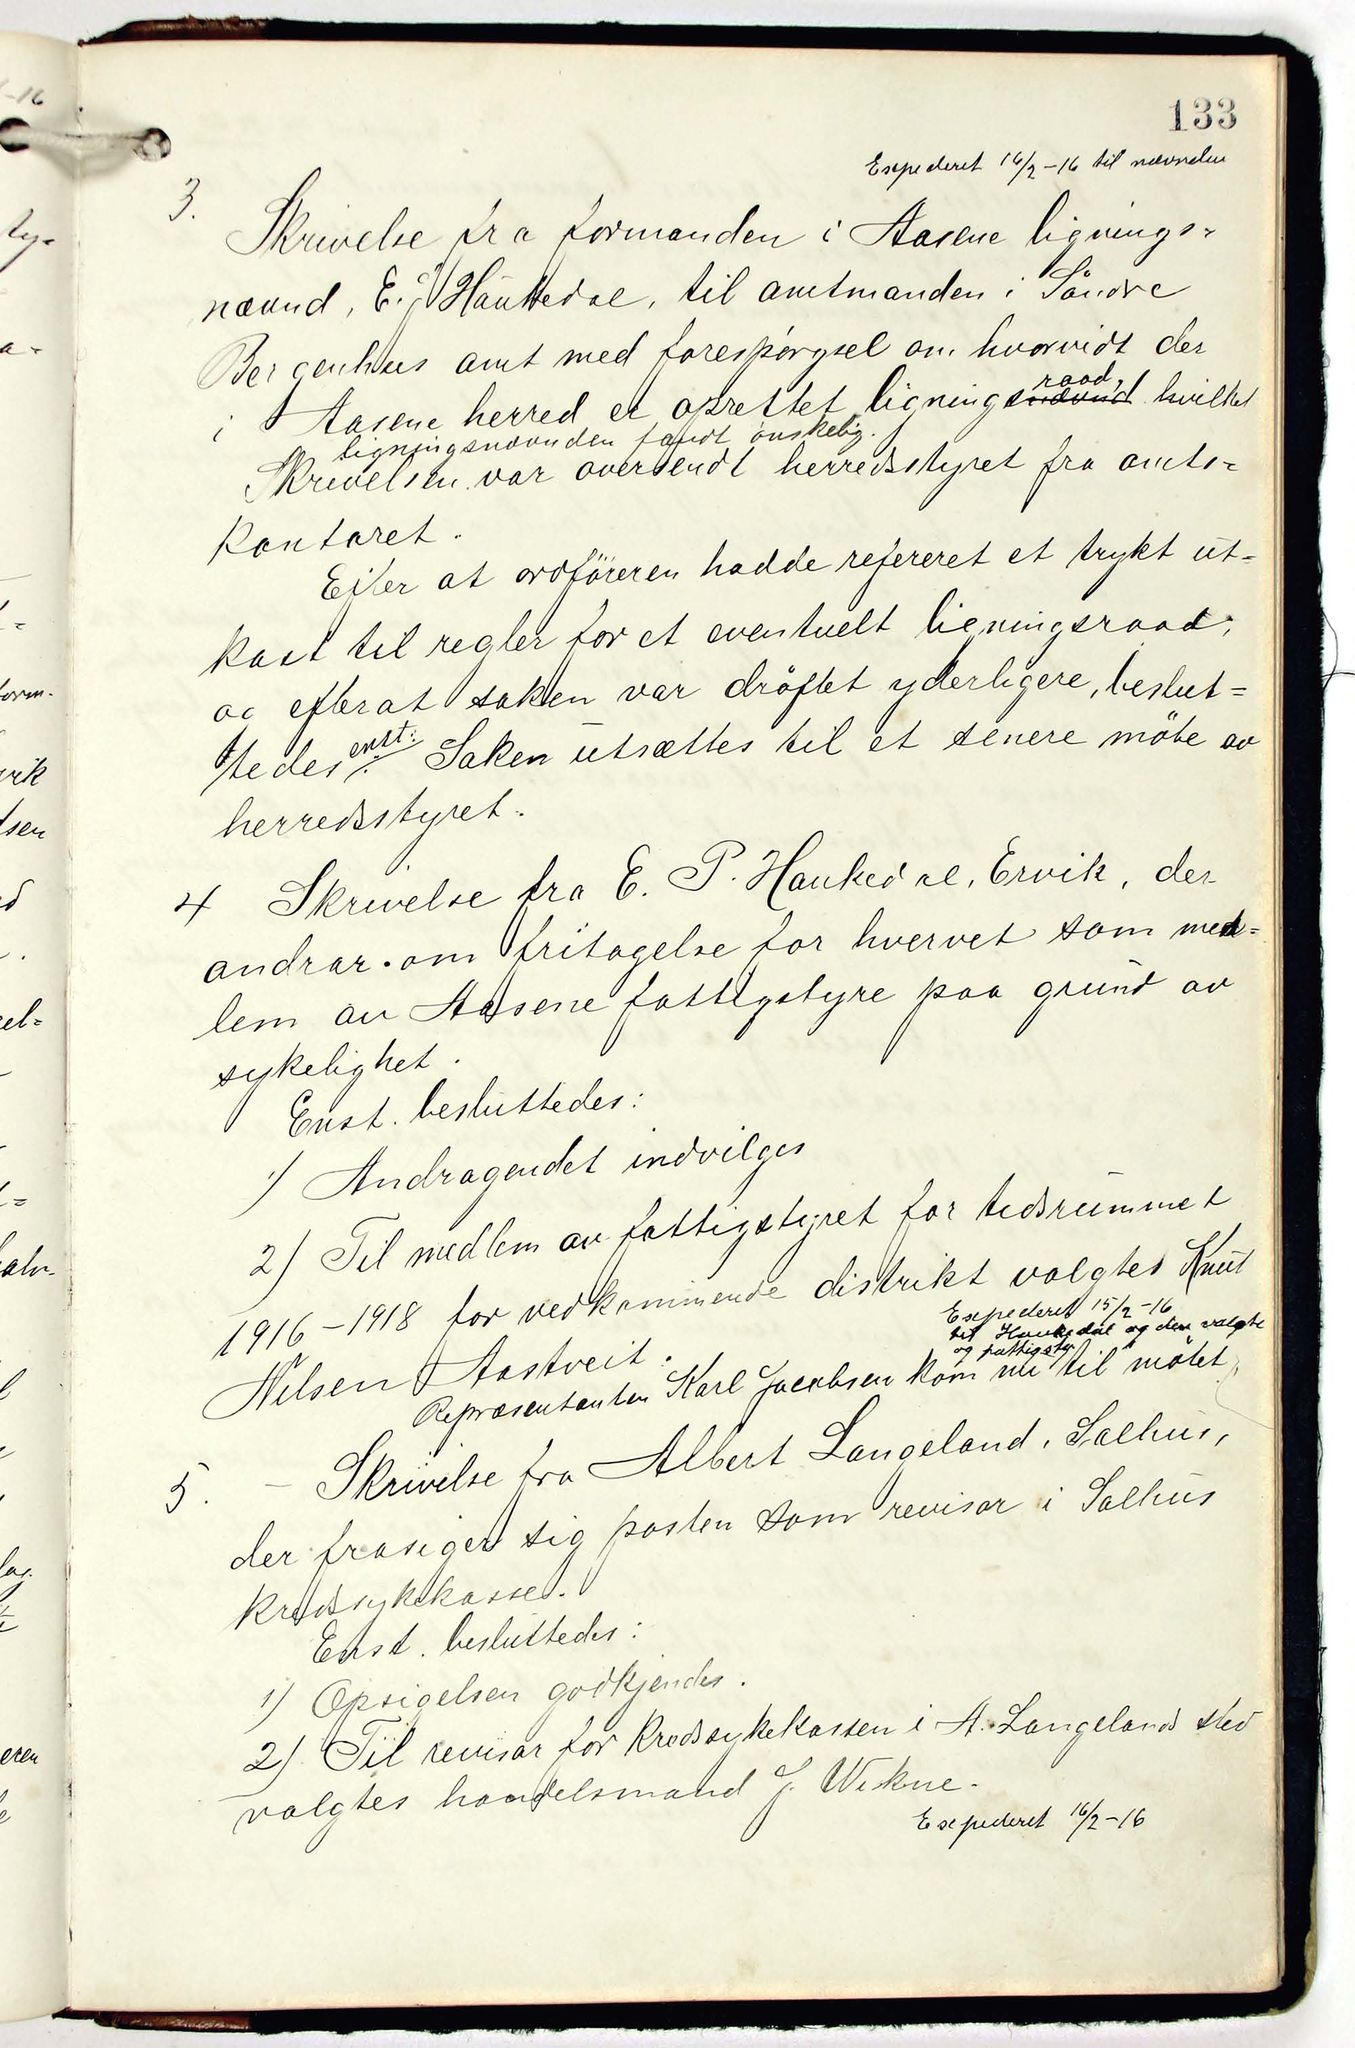 133
Expederet 16/2-16 til nævnden
3. Skrivelse fra formanden i Aasene lignings=
nævnd, E. J. Haukedal, til amtmanden i Söndre
Bergenhus amt med forespörgsel om hvorvidt der
i Aasene herred er oprettet ligningsnævnd raad, hvilket
ligningsnævnden fandt önskelig.
Skrivelsen var oversendt herredsstyret fra amts=
kontoret.
Efter at ordföreren hadde refereret et trykt ut=
kast til regler for et eventuelt ligningsraad,
og efterat saken var dröftet yderligere, beslut=
tedes enst: Saken utsættes til et senere möte av
herredsstyret.
4 Skrivelse fra E. P. Haukedal, Ervik, der
andrar om fritagelse for hvervet som med=
lem av Aasene fattigstyre paa grund av
sykelighet.
Enst. besluttedes:
1) Andragendet indvilges
2) Til medlem av fattigstyret for tidsrummet
1916-1918 for vedkommende distrikt valgtes Knut
Nilsen Aastveit.
Expederet 15/2-16
til Haukedal og den valgte
og fattigsty.
Repræsentanten Karl Jacobsen kom nu til mötet.
5. - Skrivelse fra Albert Langeland, Salhus,
der frasiger sig posten som revisor i Salhus
kredssykekasse.
Enst. besluttedes:
1) Opsigelsen godkjendes.
2) Til revisor for kredssykekassen i A. Langelands sted
valgtes handelsmand J. Wikne.
Expederet 16/2-16